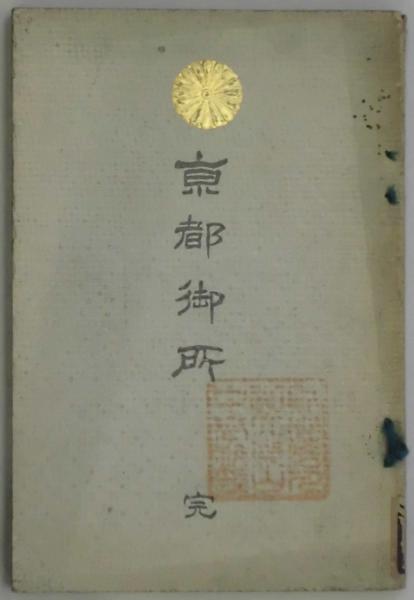 京都御所
完